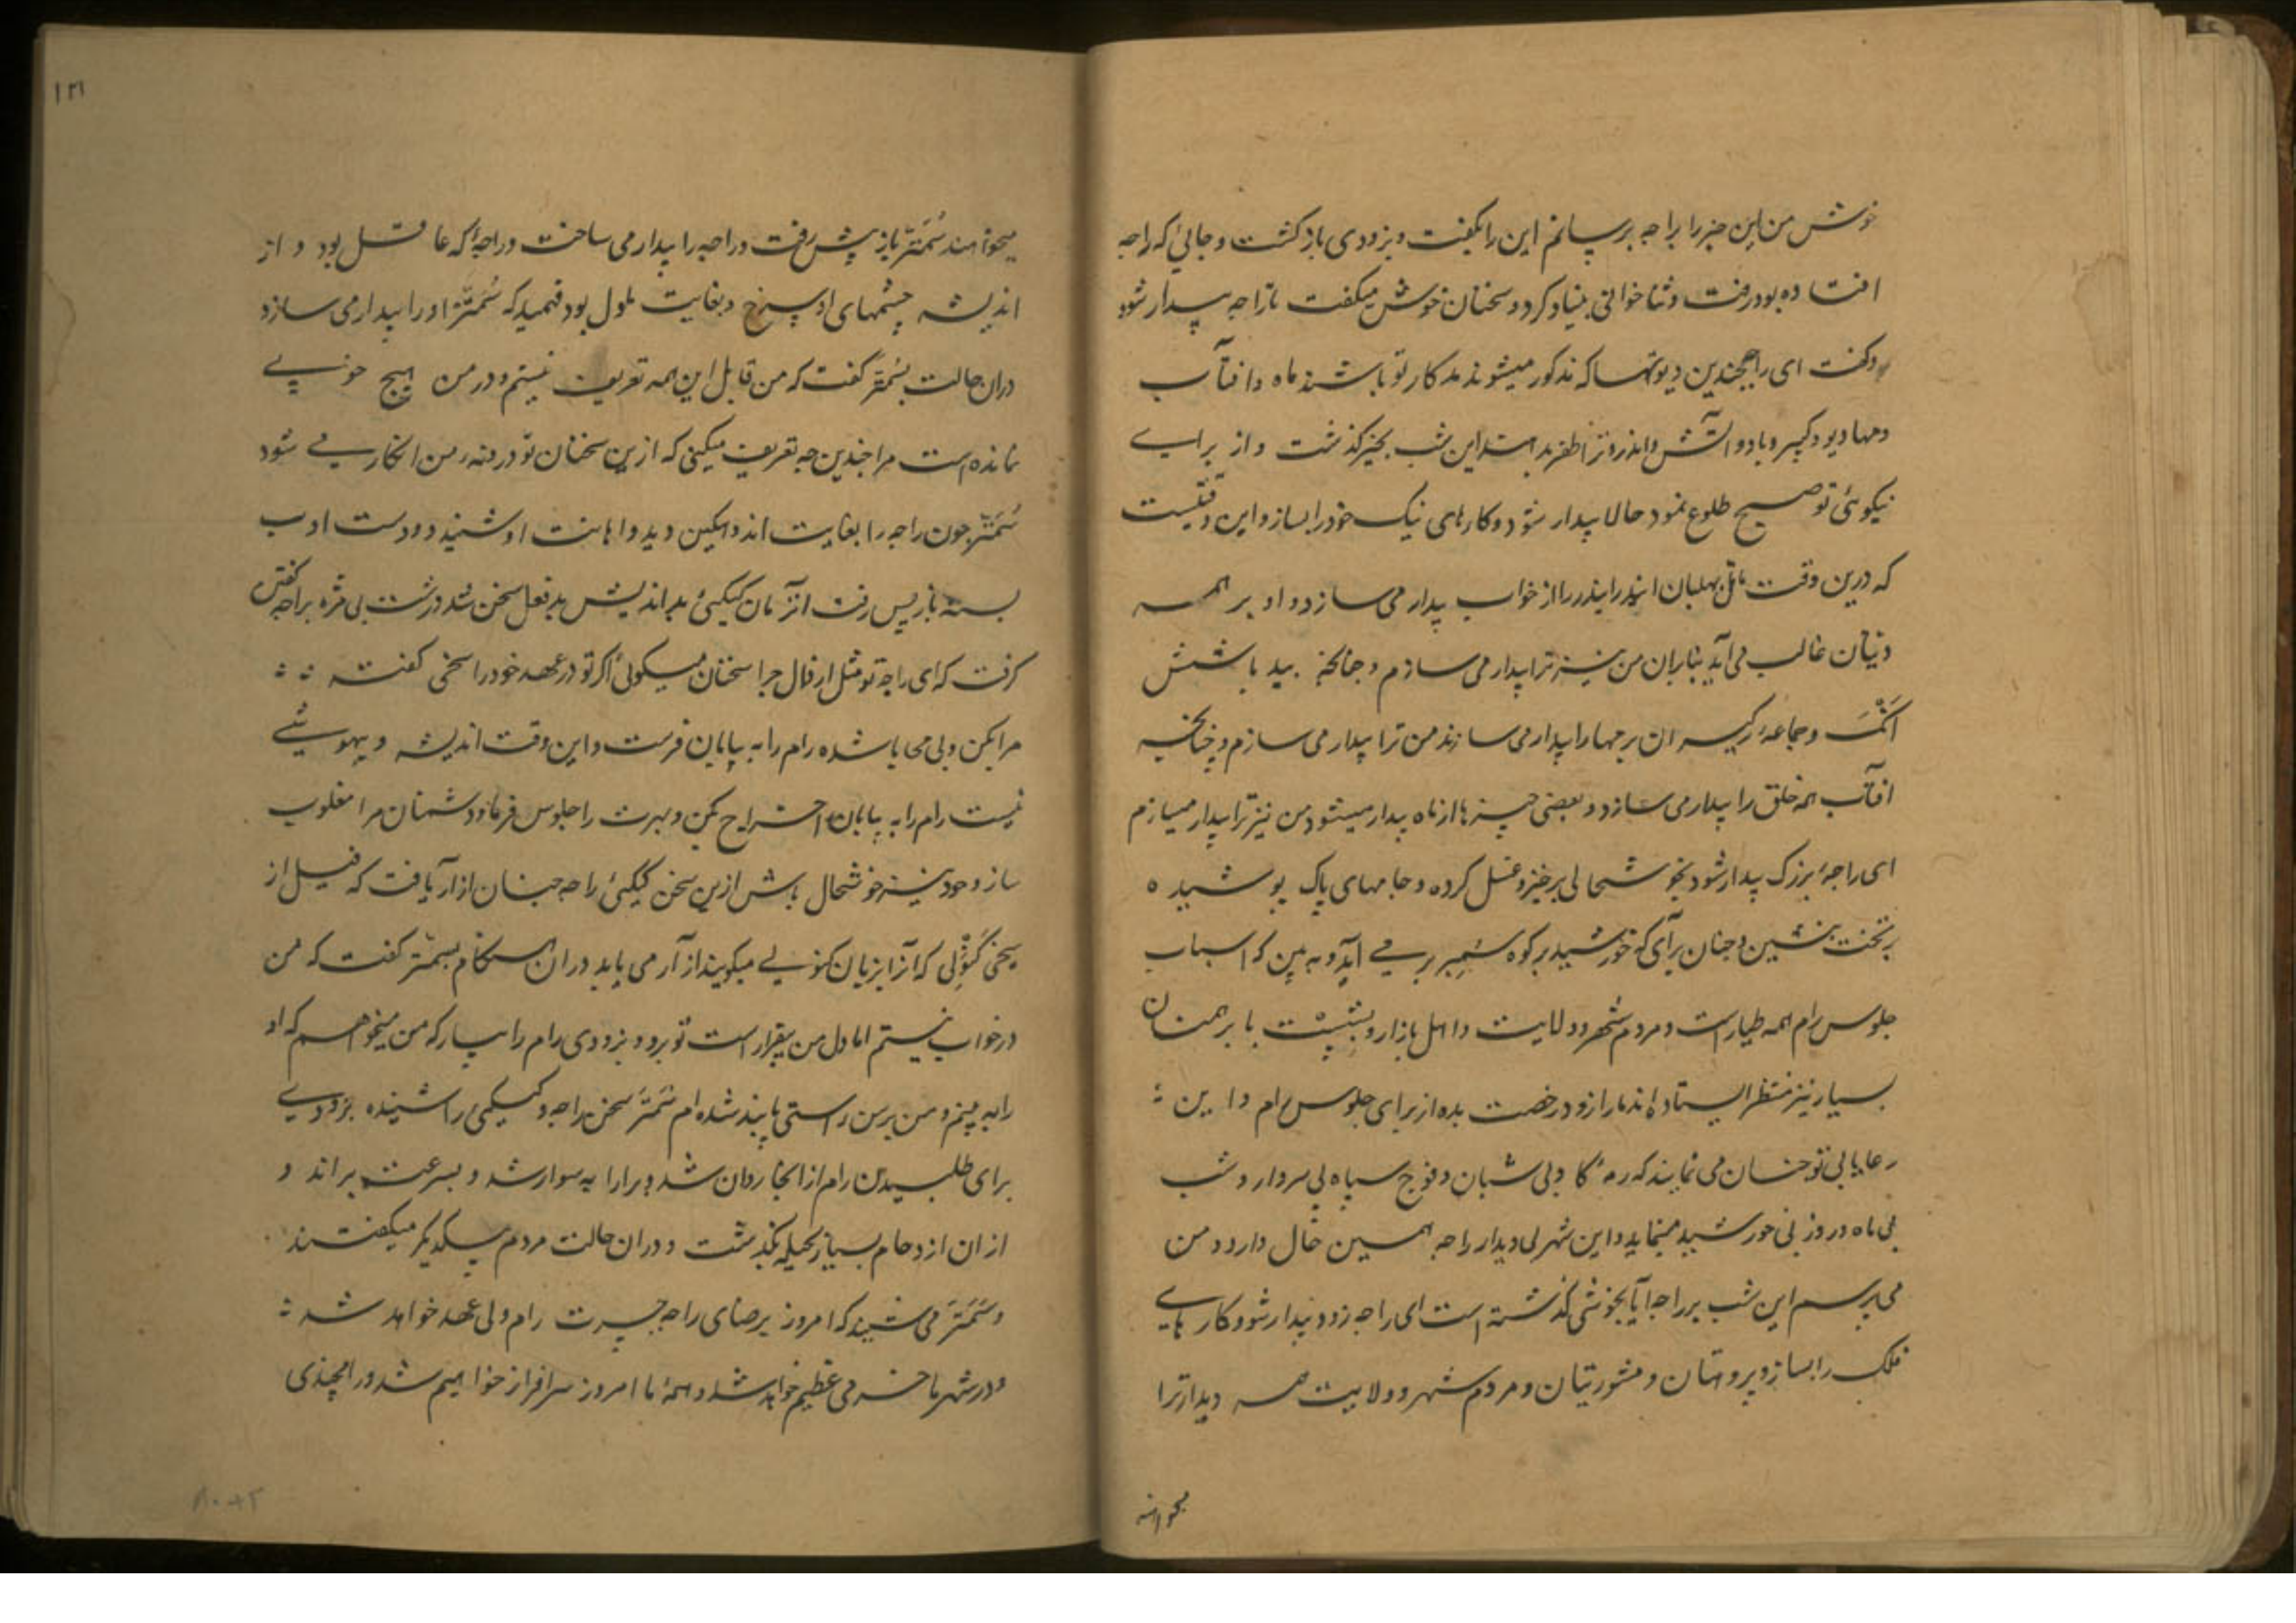 خوش من این خبر را براجه برسانم این را بگفت و بزودی بازگشت و جائی که راجه
افتاده بود رفت و ثنا خوانی بنیاد کرد و سخنان خوش میگفت تا راجه بیدار شود
و گفت ای راجه چندین دیوتها که مذکور میشوند مددکار تو باشند ماه و آفتاب
و مهادیو و کبیر و باد و آتش و اندر و ترا ظفر بدهند این شب بخیر گذشت و از برای
نیکوئی تو صبح طلوع نمود حالا بیدار شو و کارهای نیک خود را بساز و این وقتیست
که درین وقت ماتل بهلبان اندر اندر را از خواب بیدار می سازد و او بر همه
دیتان غالب می آید بنابران من نیز ترا بیدار می سازم و چنانچه بید با شش
انگ و جماعه رکهیسران برمها را بیدار می سازند من ترا بیدار می سازم و چنانچه
آفتاب همه خلق را بیدار می سازد و بعضی چیزها از ماه بیدار میشود من نیز ترا بیدار میسازم
ای راجه بزرگ بیدار شو و بخوشحالی برخیز و غسل کرده و جامهای پاک پوشیده
بر تخت بنشین و چنان برآی که خورشید بر کوه سمیر بر می آید و به بین که اسباب
جلوس رام همه طیار است و مردم شهر و ولایت و اهل بازار و بشیشت با برهمنان
بسیار نیز منتظر ایستاده اند مارا زود رخصت بده از برای جلوس رام و این
رعایا بی تو چنان می نمایند که رمه گاو بی شبان و فوج سپاه بی سردار و شب
بی ماه و روز بی خورشید مینماید و این شهر بی دیدار راجه همین حال دارد و من
می پرسم این شب بر راجه آیا بخوشی گذشته است ای راجه زود بیدار شو و کارهای
ملک را بساز و پروهتان و مشورتیان و مردم شهر و ولایت همه دیدار ترا
میخواهند
۱۳۱
میخواهند سُمنتر باز پیش رفت و راجه را بیدار می ساخت و راجه که عاقل بود و از
اندیشه چشمهای او سرخ و بغایت ملول بود فهمید که سُمنتر او را بیدار می سازد
دران حالت بسُمنتر گفت که من قابل این همه تعریف نیستم و در من هیچ خوبی
نمانده است مرا چندین چه تعریف میکنی که ازین سخنان تو درونه من افگار می شود
سُمنتر چون راجه را بغایت اندوهگین دید و اهانت او شنید و دست ادب
بسته باز پس رفت آنزمان کیکئی بد اندیش بد فعل سخن تند و زشت بی مزه براجه گفتن
گرفت که ای راجه تو مثل ارذال چرا سخنان میگوئی اگر تو در عهد خود راسخی گفته
مرا بکن و بی محابا شده رام را به بیابان فرست و این وقت اندیشه و بیهوشی
نیست رام را به بیابان اخراج بکن و بهرت را جلوس فرما و دشمنان مرا مغلوب
ساز و خود نیز خوشحال باش ازین سخن کیکئی راجه چنان آزار یافت که فیل از
سیخی که آنرا بزبان میگویند آزار می یابد دران هنگام بسمنتر گفت که من
در خواب نیستم اما دل من بیقرار است تو برو و بزودی رام را بیار که من میخواهم که او
را به بینم و من برسن راستی پابند شده ام سُمنتر سخن راجه و کیکئی را شنیده بزودی
برای طلبیدن رام از آنجا روان شد و برارابه سوار شد و بسرعت براند و
از ان ازدحام بسیار بحیله بگذشت و دران حالت مردم بیکدیگر میگفتند
و سُمنتر می شنید که امروز برضای راجه جسرت رام ولی عهد خواهد شد
و در شهر ما خرمی عظیم خواهد شد و همه ما امروز سرافراز خواهیم شد و رامچندی